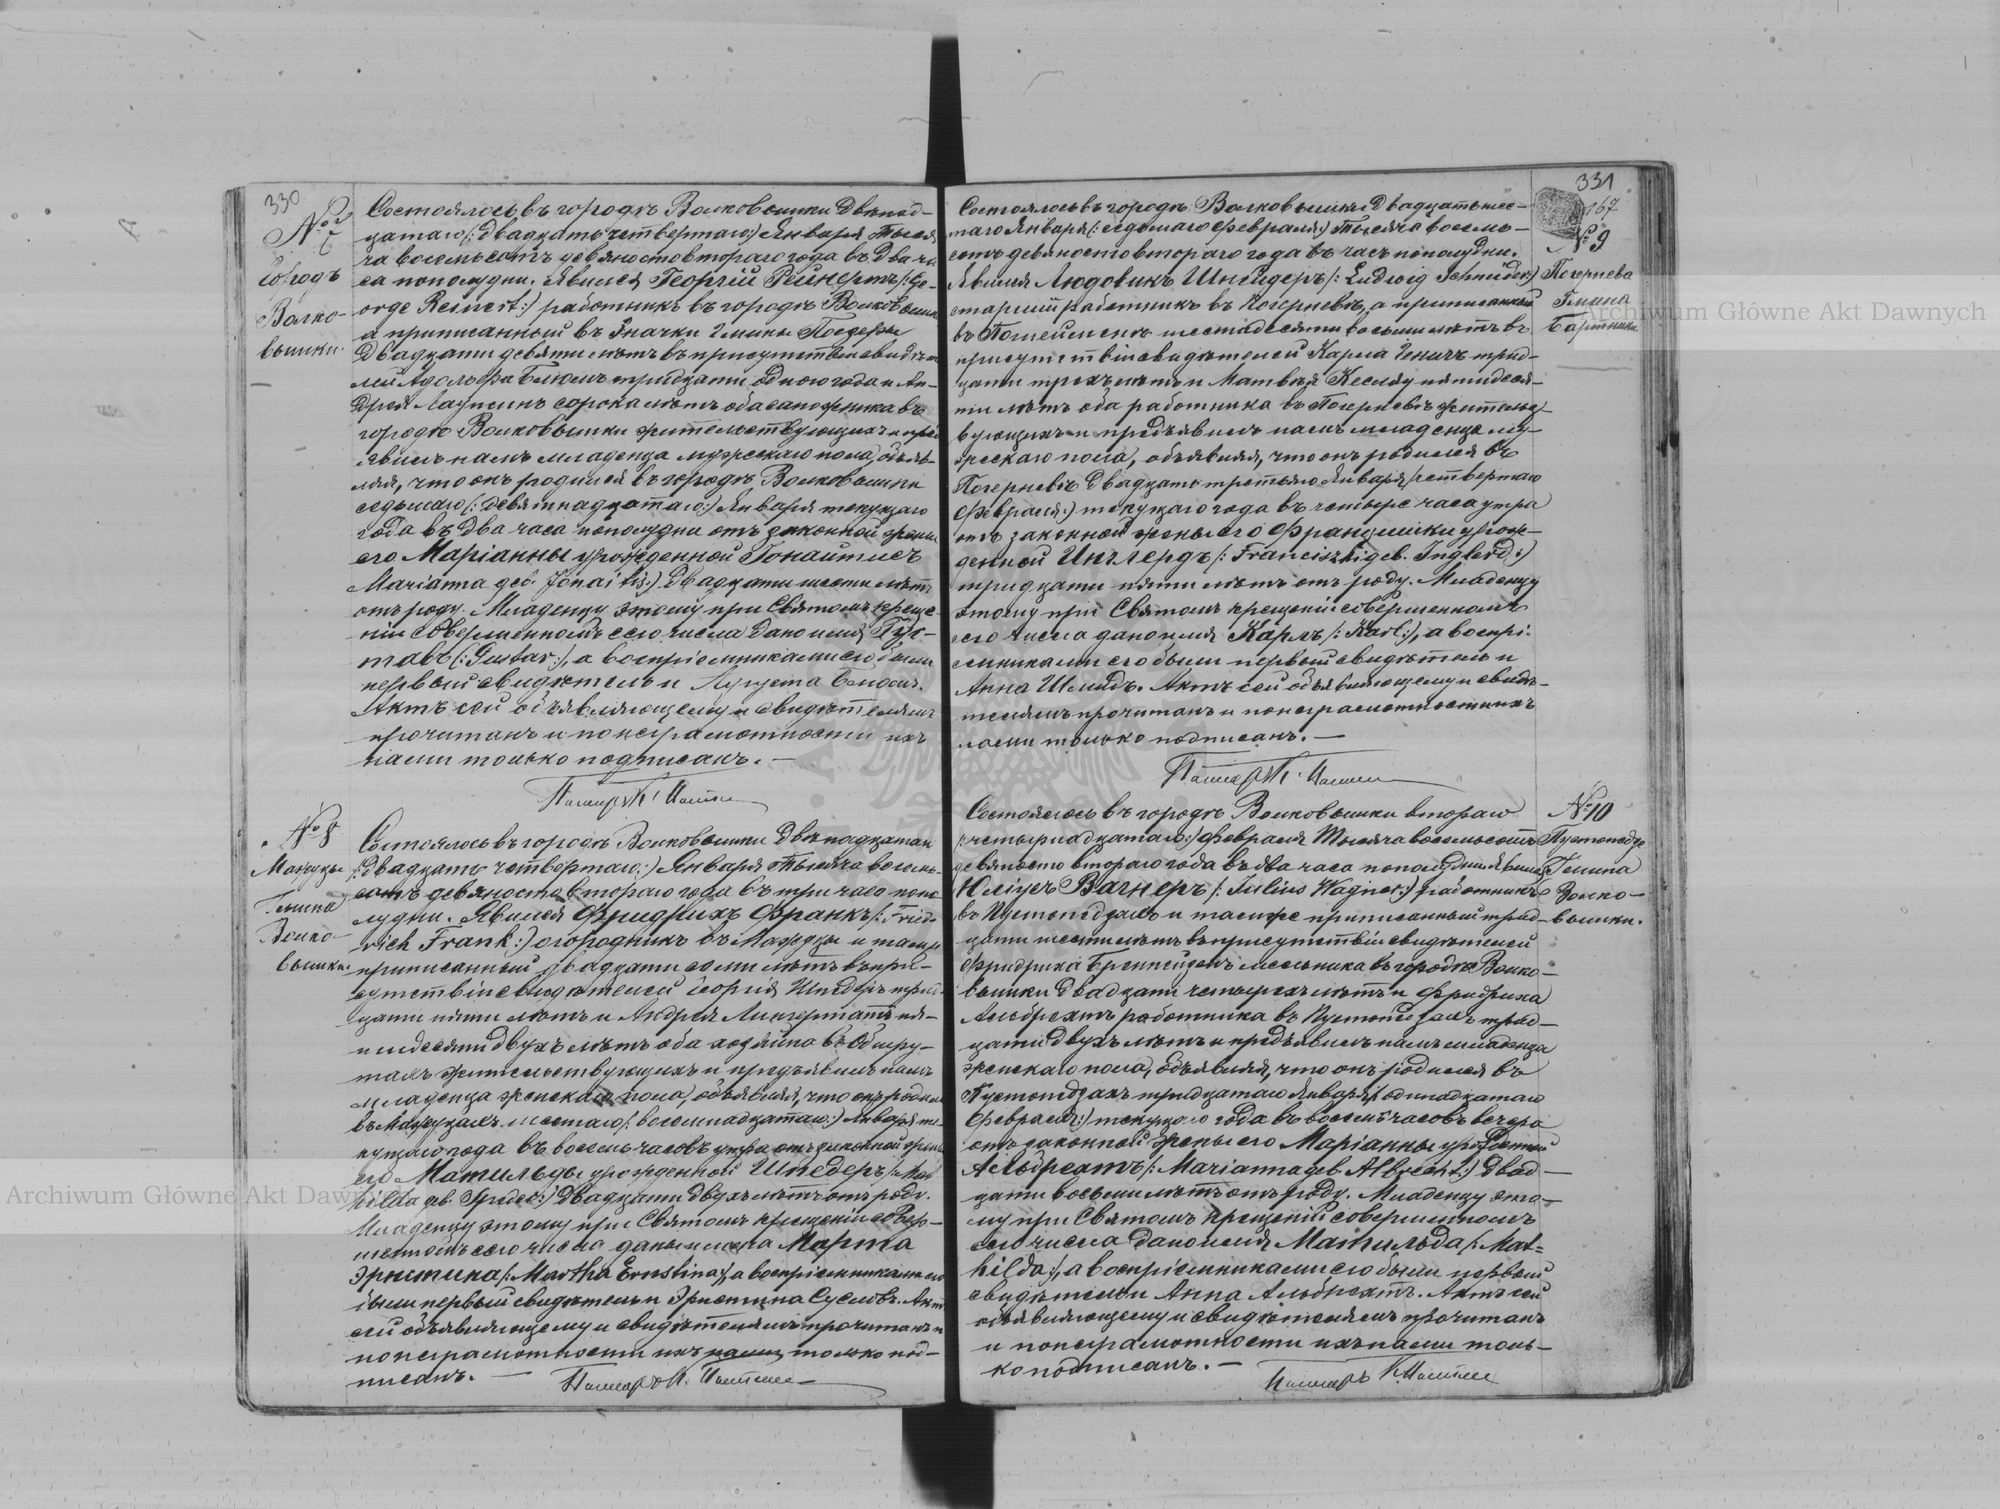 330
№ 7
Городъ
Волко-
вышки.
Состоялось въ городѣ Волковышки двѣнад-
цатаго /: двадцать четвертаго :/ Января тысяча
восемьсотъ девяносто втораго года въ два ча-
са пополудни. Явился Георгій Рейнертъ /: Ge-
orge Reinert :/ работникъ въ городѣ Волковышки
а приписанный въ Значки Гмины Посдеры
двадцати девяти лѣтъ въ присутствіи свидѣте-
лей Адольфа Блюмъ тридцати одного года и Ан-
дрея сорока лѣтъ оба сапожника въ
городѣ Волковышки жительствующихъ и предъ-
явилъ намъ младенца мужескаго пола, объяв-
ляя, что онъ родился въ городѣ Волковышки
седьмаго /: девятнадцатаго :/ Января текущаго
года въ два часа пополудни отъ законной жены
его Маріанны урожденной Іонайтисъ
Marianna geb. Jonaitis :/ двадцати шести лѣтъ
отъ роду. Младенцу этому при Святомъ Креще-
ніи совершенномъ сего числа дано имя Гус-
тавъ /: Gustav :/, а воспріемниками его были
первый свидѣтель и Августа Блюмъ.
Актъ сей объявляющему и свидѣтелямъ
прочитанъ и по неграмотности ихъ
нами только подписанъ. —
Пасторъ К.
№ 8
Мажуцы
Гмина
Волко-
вышки
Состоялось въ городѣ Волковышки двѣнадцатаго
/: двадцать четвертаго :/ Января тысяча восемь-
сотъ девяносто втораго года въ три часа попо-
лудни. Явился Фридрихъ Франкъ /: Fried-
rich Frank :/ огородникъ въ Мажуцы и тамже
приписанный двадцати семи лѣтъ въ при-
сутствіи свидѣтелей Георгія Шнедеръ трид-
цати пяти лѣтъ и Андрея Лингертатъ пя-
тидесяти двухъ лѣтъ оба хозяина въ Обшру-
тахъ жительствующихъ и предъявилъ намъ
младенца женскаго пола, объявляя, что онъ родился
въ Мажуцахъ шестаго /: восемнадцатаго :/ Января те-
кущаго года въ восемь часовъ утра отъ законной жены
его Матильды урожденной Шпедеръ /: Mat-
hilda geb. :/ двадцати двухъ лѣтъ отъ роду.
Младенцу этому при Святомъ Крещеніи совер-
шенномъ сего числа даны имена Марта
Эрнстина /: Martha Ernstina :/, а воспріемниками его
были первый свидѣтель и Эрнстина Сусловъ. Актъ
сей объявляющему и свидѣтелямъ прочитанъ и
по неграмотности ихъ нами только под-
писанъ. —
Пасторъ К.
331
167
№ 9
Погернева
Гмина
Бартники
Состоялось въ городѣ Волковышки двадцать шес-
таго Января /: седьмаго Февраля :/ тысяча восемь-
сотъ девяносто втораго года въ часъ пополудни.
Явился Людовикъ Шнейдеръ /: Ludwig Schneider :/
старшій работникъ въ Погерневѣ, а приписанный
въ шестидесяти восьми лѣтъ въ
присутствіи свидѣтелей Карла Генигъ трид-
цати трехъ лѣтъ и Матвѣя Кеслау пятидеся-
ти лѣтъ оба работника въ Погерневѣ жительст-
вующихъ и предъявилъ намъ младенца му-
жескаго пола, объявляя, что онъ родился въ
Погерневѣ двадцать третьяго Января /: четвертаго
Февраля :/ текущаго года въ четыре часа утра
отъ законной жены его Францишки урож-
денной Инглердъ /: Franciszki geb. Inglerd :/
тридцати пяти лѣтъ отъ роду. Младенцу
этому при Святомъ Крещеніи совершенномъ
сего числа дано имя Карлъ /: Karl :/, а воспрі-
емниками его были первый свидѣтель и
Анна Шмидъ. Актъ сей объявляющему и свидѣ-
телямъ прочитанъ и по неграмотности ихъ
нами только подписанъ. —
Пасторъ К.
№ 10
Пустопедзе
Гмина
Волко-
вышки.
Состоялось въ городѣ Волковышки втораго
/: четырнадцатаго :/ Февраля тысяча восемьсотъ
девяносто втораго года въ два часа пополудни. Явился
Юліусъ Вагнеръ /: Julius Wagner :/ работникъ
въ Пустопедзахъ и тамже приписанный трид-
цати шести лѣтъ въ присутствіи свидѣтелей
Фридриха мельника въ городѣ Волко-
вышки двадцати четырехъ лѣтъ и Фридриха
Альбрехтъ работника въ Пустопедзахъ трид-
цати двухъ лѣтъ и предъявилъ намъ младенца
женскаго пола, объявляя, что онъ родился въ
Пустопедзахъ тридцатаго Января /: одинадцатаго
Февраля :/ текущаго года въ восемь часовъ вечера
отъ законной жены его Маріанны урожденной
Альбрехтъ /: Marianna geb. Albrecht :/ двад-
цати восьми лѣтъ отъ роду. Младенцу это-
му при Святомъ Крещеніи совершенномъ
сего числа дано имя Матильда /: Mat-
hilda :/, а воспріемниками его были первый
свидѣтель и Анна Альбрехтъ. Актъ сей
объявляющему и свидѣтелямъ прочитанъ
и по неграмотности ихъ нами толь-
ко подписанъ. —
Пасторъ К.
Archiwum Główne Akt Dawnych
Archiwum Główne Akt Dawnych